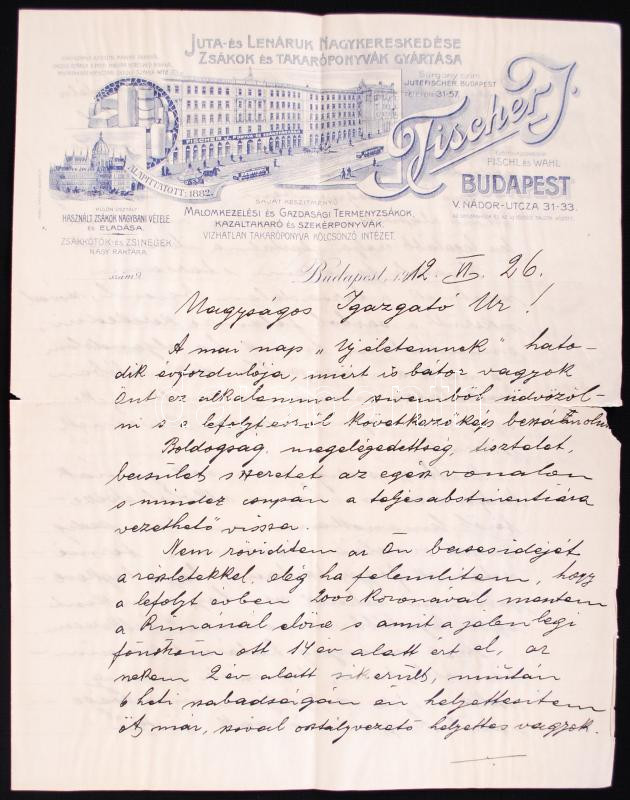 JUTA-ÉS LENÁRUK NAGYKERESKEDÉSE
ZSÁKOK ÉS TAKARÓPONYVÁK GYÁRTÁSA
Sürgöny czim:
JUTEFISCHER BUDAPEST
TELEFON 31-57.
Fischer J.
FISCHL ÉS WAHL
BUDAPEST
V. NÁDOR-UTCZA 31-33.
ALAPITTATOTT: 1882.
KÜLÖN OSZTÁLY
HASZNÁLT ZSÁKOK NAGYBANI VÉTELE
ÉS ELADÁSA.
ZSÁKKÖTŐK-ÉS ZSINEGEK
NAGY RAKTÁRA.
SAJÁT KÉSZITMÉNYŰ
MALOMKEZELÉSI ÉS GAZDASÁGI TERMÉNYZSÁKOK,
KAZALTAKARÓ ÉS SZEKÉRPONYVÁK.
VIZHATLAN TAKARÓPONYVA KÖLCSÖNZŐ INTÉZET.
Budapest, 1912. VI. 26.
Nagyságos Igazgató Ur!
A mai nap „Uj életemnek" hato-
dik évfordulója, miért is bátor vagyok
Önt ez alkalommal szivemből üdvözöl-
ni s a lefolyt évről következőkép beszámolni
Boldogság, megelégedettség, tisztelet,
becsület szeretet az egész vonalon
s mindez csupán a teljes abstinentiára
vezethető vissza.
Nem röviditem az Ön becses idejét
a részletekkel, elég ha felemlitem, hogy
a lefolyt évben 2000 Koronával mentem
a Rimánál előre s amit a jelenlegi
főnököm ott 14 év alatt ért el, az
nekem 2 év alatt sikerült, miután
6 heti szabadságán én helyettesitem
őt már, szóval osztályvezető helyettes vagyok.